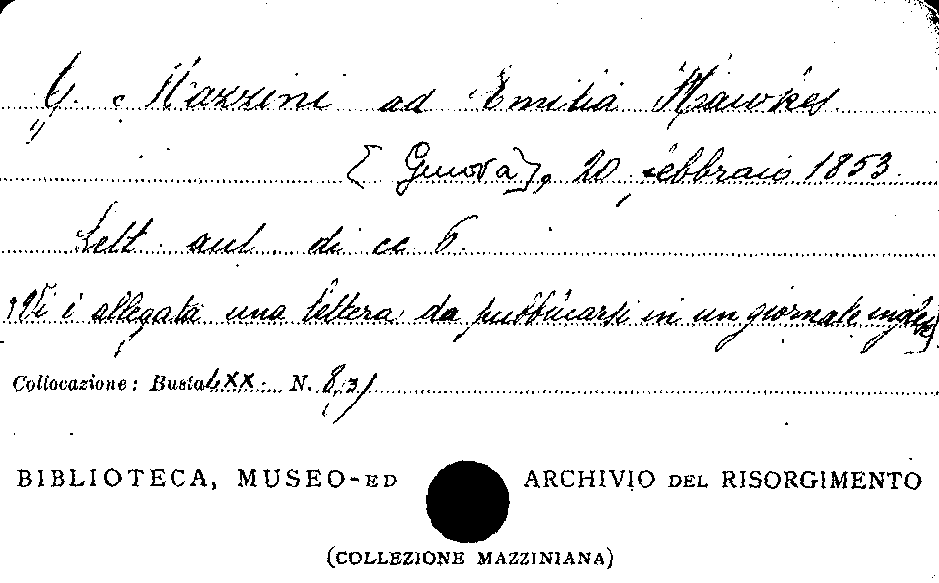 G. Mazzini ad Emilia Hawkes
[Genova], 20 febbraio 1853.
Lett. aut. di cc 6.
Vi è allegata una lettera da pubblicarsi in un giornale inglese
Collocazione: Busta LXX. N. 8,31
BIBLIOTECA, MUSEO ED ARCHIVIO DEL RISORGIMENTO
(COLLEZIONE MAZZINIANA)